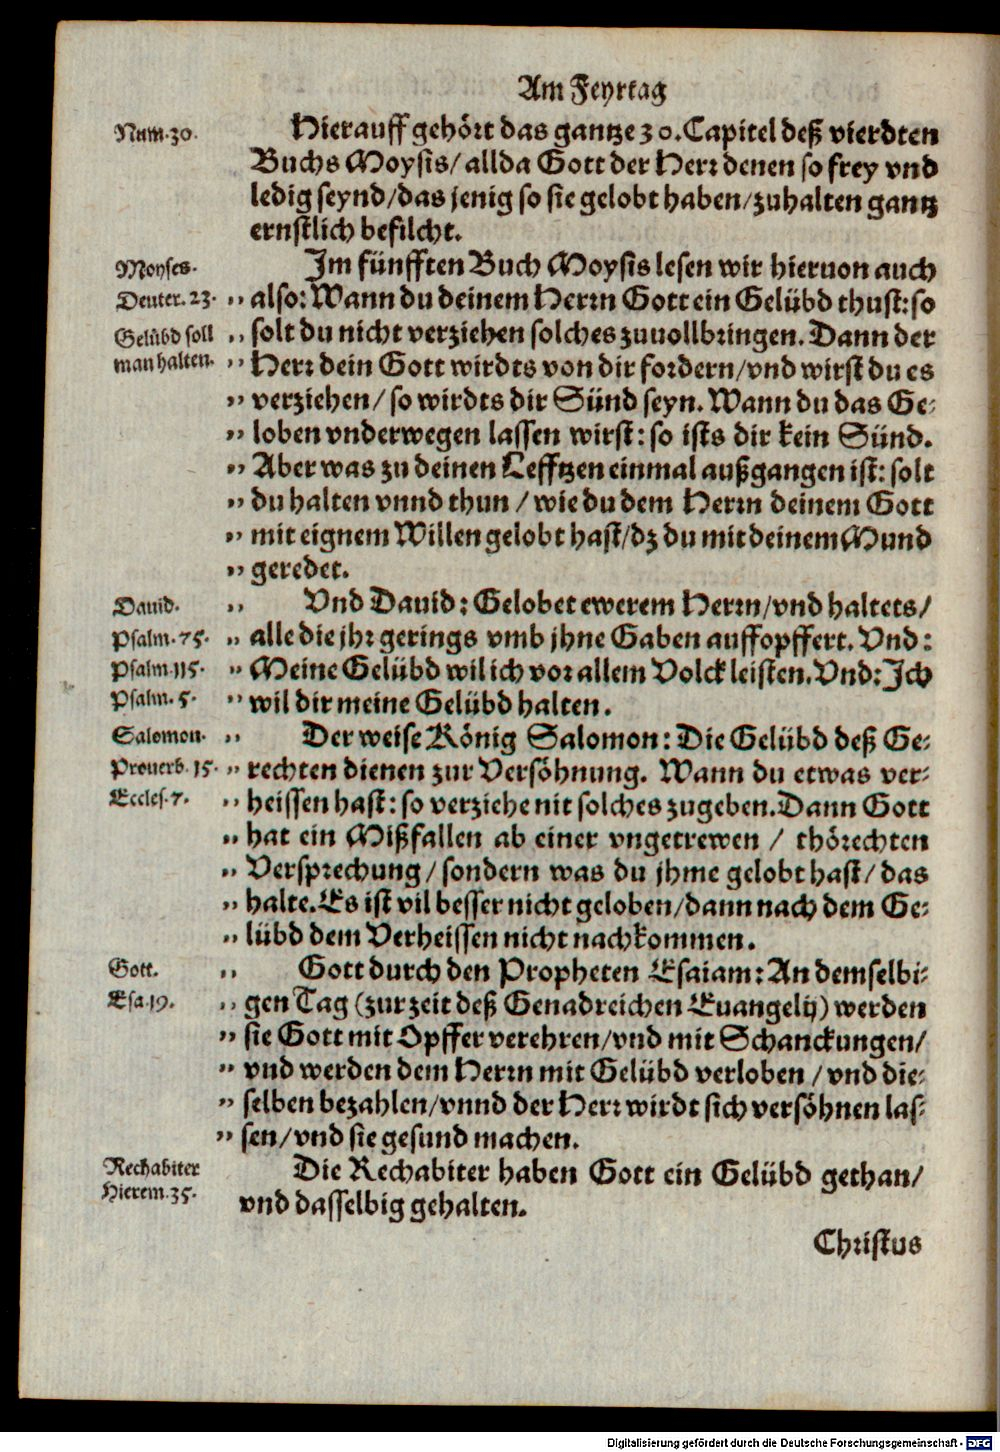 Am Feyrtag
Num. 30.
Hierauff gehört das gantze 30. Capitel deß vierdten
Buchs Moysis/ allda Gott der Herr denen so frey vnd
ledig seynd/ das jenig so sie gelobt haben/ zuhalten gantz
ernstlich befilcht.
Moyses.
Im fünfften Buch Moysis lesen wir hieruon auch
Deuter. 23.
„ also: Wann du deinem Herrn Gott ein Gelübd thust: so
Gelübd soll
„ solt du nicht verziehen solches zuuollbringen. Dann der
man halten.
„ Herr dein Gott wirdts von dir fordern/ vnd wirst du es
„ verziehen/ so wirdts dir Sünd seyn. Wann du das Ge-
„ loben vnderwegen lassen wirst: so ists dir kein Sünd.
„ Aber was zu deinen Lefftzen einmal außgangen ist: solt
„ du halten vnnd thun / wie du dem Herrn deinem Gott
„ mit eignem Willen gelobt hast/ dz du mit deinem Mund
„ geredet.
Dauid.
„ Vnd Dauid: Gelobet ewerem Herrn/ vnd haltets/
Psalm. 75.
„ alle die jhr gerings vmb jhne Gaben auffopffert. Vnd:
Psalm. 115.
„ Meine Gelübd wil ich vor allem Volck leisten. Vnd: Ich
Psalm. 5.
„ wil dir meine Gelübd halten.
Salomon.
„ Der weise König Salomon: Die Gelübd deß Ge-
Prouerb. 15.
„ rechten dienen zur Versöhnung. Wann du etwas ver-
Eccles. 7.
„ heissen hast: so verziehe nit solches zugeben. Dann Gott
„ hat ein Mißfallen ab einer vngetrewen / thörechten
„ Versprechung/ sondern was du jhme gelobt hast/ das
„ halte. Es ist vil besser nicht geloben/ dann nach dem Ge-
„ lübd dem Verheissen nicht nachkommen.
Gott.
„ Gott durch den Propheten Esaiam: An demselbi-
Esa. 19.
„ gen Tag (zur zeit deß Genadreichen Euangelij) werden
„ sie Gott mit Opffer verehren/ vnd mit Schanckungen/
„ vnd werden dem Herrn mit Gelübd verloben / vnd die-
„ selben bezahlen/ vnnd der Herr wirdt sich versöhnen las-
„ sen/ vnd sie gesund machen.
Rechabiter
Die Rechabiter haben Gott ein Gelübd gethan/
Hierem. 35.
vnd dasselbig gehalten.
Christus
Digitalisierung gefördert durch die Deutsche Forschungsgemeinschaft - DFG